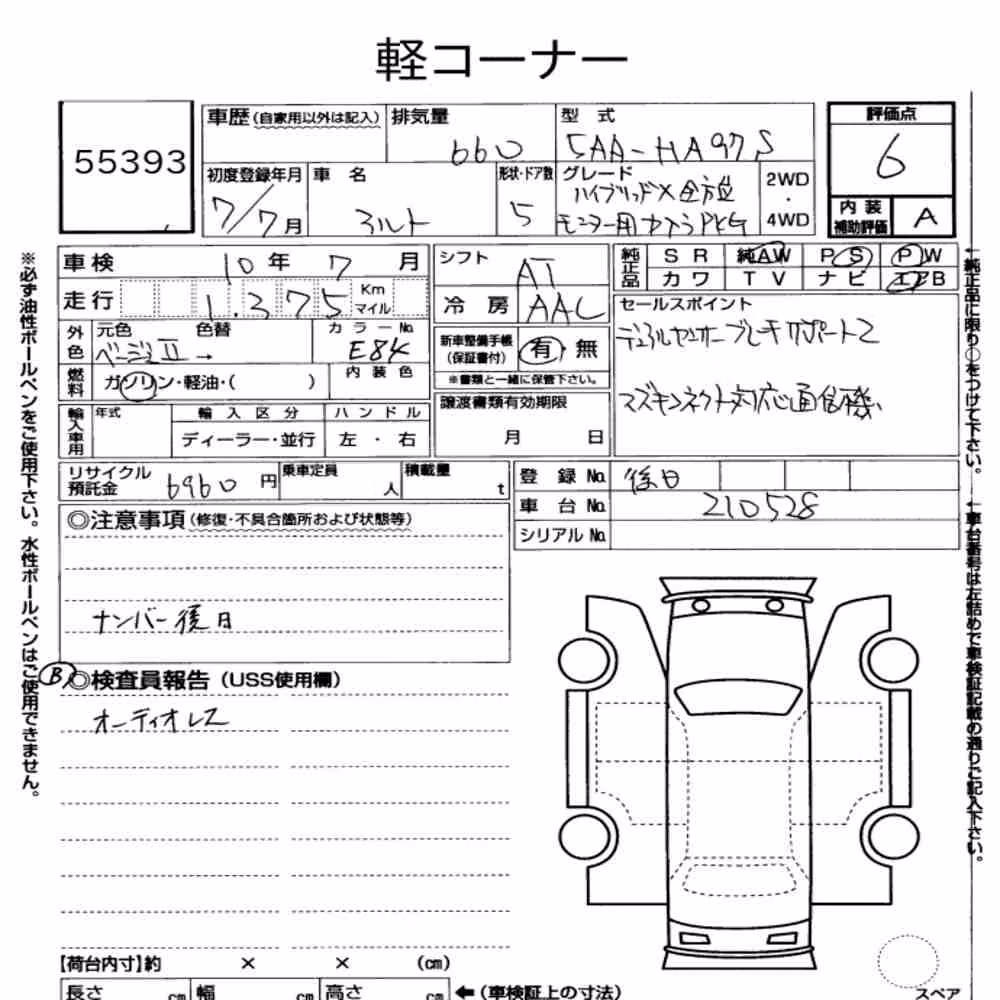 軽コーナー
55393
車歴 (自家用以外は記入)
排気量
660
型式
5AA-HA97S
評価点
6
初度登録年月
7/7月
車名
アルト
形状・ドア数
5
グレード
ハイブリッドX 全方位
モニター用カメラPKG
2WD
・
4WD
内装
補助評価
A
車検
10年 7月
走行
1,375
Km
マイル
シフト
AT
冷房
AAC
純正品
SR 純AW PS PW
カワ TV ナビ エアB
外色
元色
ベージュⅡ
色替
→
カラーNo.
E84
燃料
ガソリン・軽油・( )
内装色
新車整備手帳
(保証書付)
有 無
※書類と一緒に保管下さい。
セールスポイント
デュアルセンサーブレーキサポート2
マズキコネクト対応通信機
輸入車用
年式
輸入区分
ディーラー・並行
ハンドル
左・右
譲渡書類有効期限
月 日
リサイクル
預託金
6960円
乗車定員
人
積載量
t
登録No.
後日
車台No.
210528
シリアルNo.
◎注意事項 (修復・不具合箇所および状態等)
ナンバー後日
B
◎検査員報告 (USS使用欄)
オーディオレス
【荷台内寸】約 × × (cm)
長さ cm 幅 cm 高さ cm ←(車検証上の寸法)
スペア
※必ず油性ボールペンをご使用下さい。水性ボールペンはご使用できません。
←純正品に限り○をつけて下さい。
←車台番号は左詰めで車検証記載の通りご記入下さい。